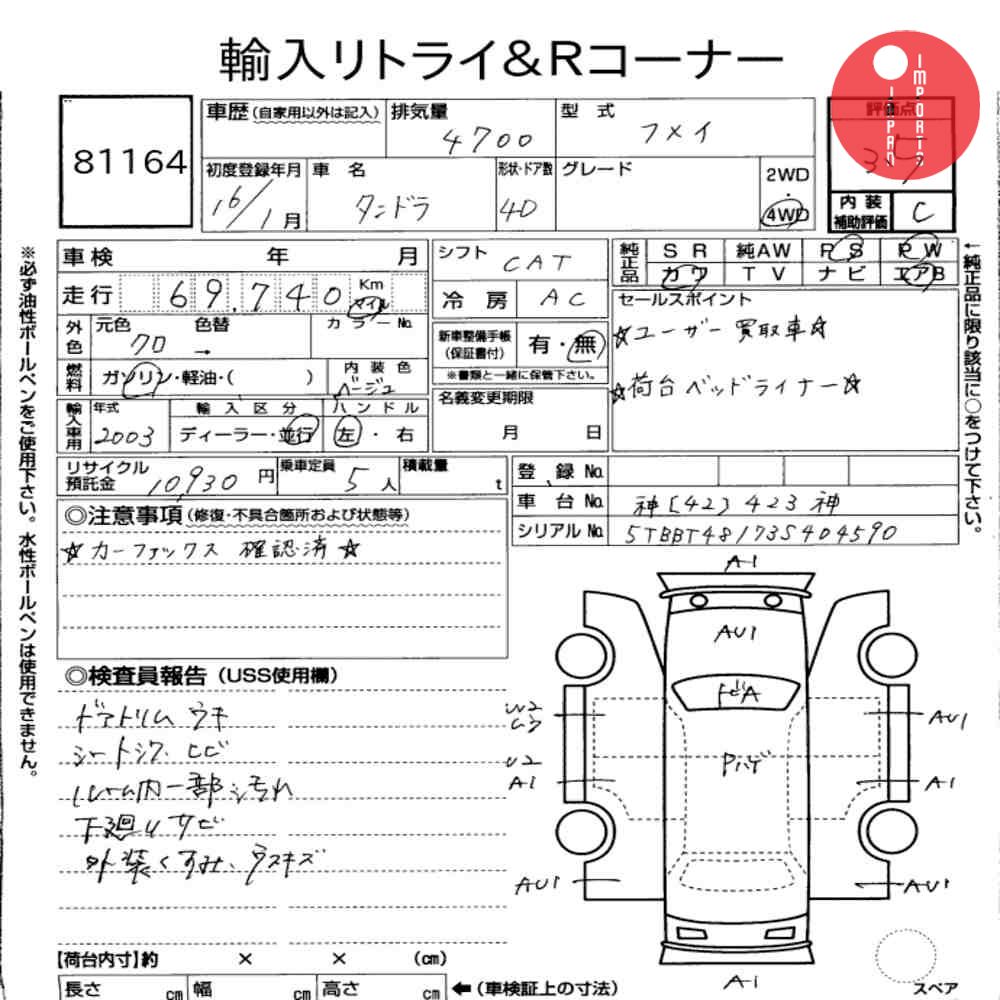 輸入リトライ&Rコーナー
IMPORTS JAPAN
81164
車歴(自家用以外は記入) 排気量 4700 型式 フメイ 評価点 3.5
初度登録年月 16/1月 車名 タンドラ 形状・ドア数 4D グレード 2WD・4WD 内装補助評価 C
※必ず油性ボールペンをご使用下さい。水性ボールペンは使用できません。
車検 年 月
シフト CAT
純正品 SR 純AW PS PW
カワ TV ナビ エアB
走行 69,740 Km マイル
冷房 AC
外色 元色 クロ 色替 → カラーNo.
新車整備手帳(保証書付) 有・無
※書類と一緒に保管下さい。
セールスポイント
☆ユーザー買取車☆
☆荷台ベッドライナー☆
燃料 ガソリン・軽油・( ) 内装色 ベージュ
名義変更期限 月 日
輸入車用 年式 2003 輸入区分 ディーラー・並行 ハンドル 左・右
←純正品に限り該当に○をつけて下さい。
リサイクル預託金 10,930円 乗車定員 5人 積載量 t
登録No.
車台No. 神[42]423神
シリアルNo. 5TBBT48173S404590
◎注意事項(修復・不具合箇所および状態等)
☆カーファックス確認済☆
◎検査員報告(USS使用欄)
ドアトリムウキ
シートシワ、ヒビ
ルーム内一部汚れ
下廻りサビ
外装くすみ、ウスキズ
A1
AU1
トビA
U2
AU1
Pハゲ
U2
A1
A1
AU1
AU1
A1
スペア
【荷台内寸】約 × × (cm)
長さ cm 幅 cm 高さ cm ←(車検証上の寸法)